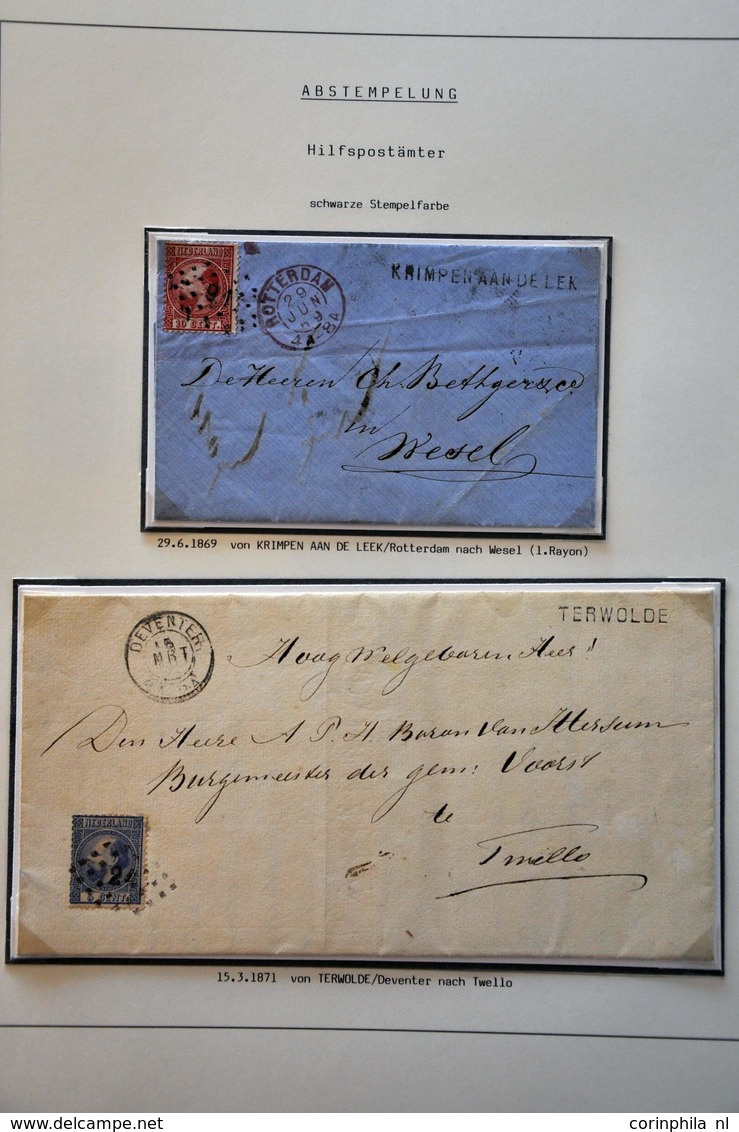 ABSTEMPELUNG
Hilfspostämter
schwarze Stempelfarbe
NEDERLAND
10 CENT.
ROTTERDAM
29
JUN
69
4A-8A
KRIMPEN AAN DE LEK
De Heeren Ch. Bethgen & Co
in
Wesel
29.6.1869 von KRIMPEN AAN DE LEEK/Rotterdam nach Wesel (1.Rayon)
TERWOLDE
DEVENTER
15
MRT
Hoog Welgeboren Heer!
Den Heere A P. H. Baron Van
Burgemeester der gem: Voorst
te
Twello
NEDERLAND
5 CENT.
15.3.1871 von TERWOLDE/Deventer nach Twello
delcampe.net
corinphila nl